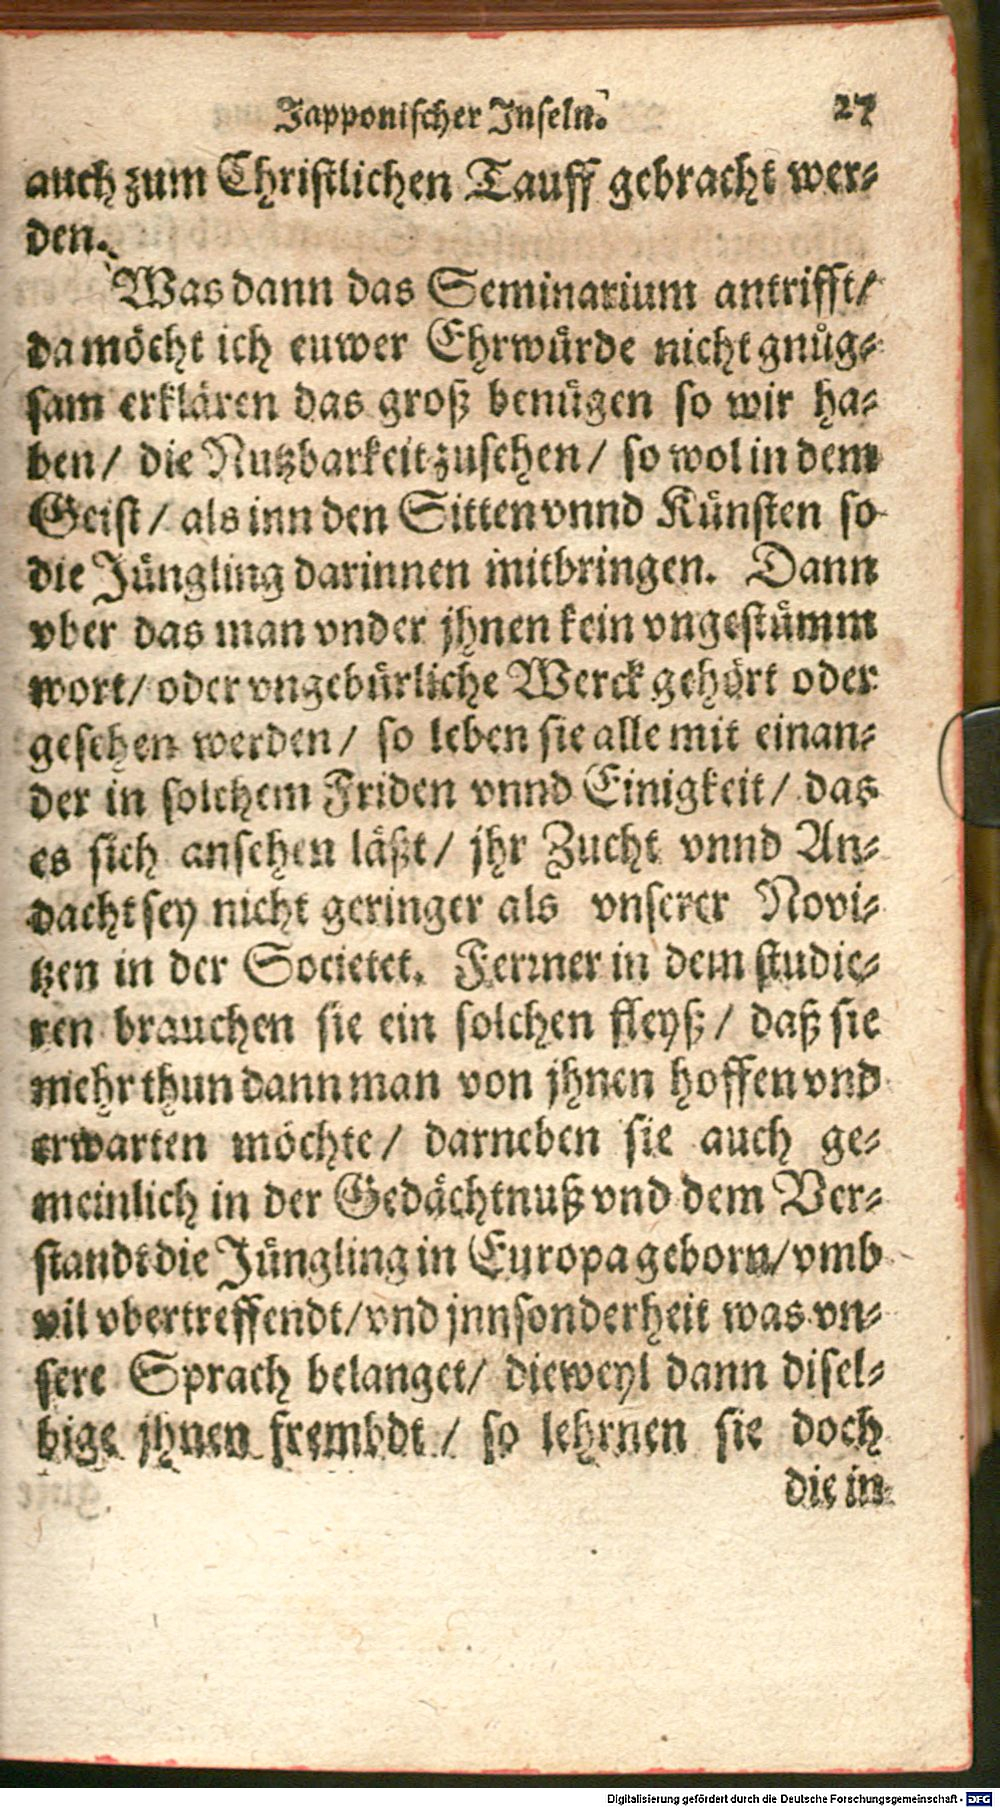 Japponischer Inseln. 27
auch zum Christlichen Tauff gebracht wer-
den.
Was dann das Seminarium antrifft/
da möcht ich euwer Ehrwürde nicht gnůg-
sam erklären das groß benügen so wir ha-
ben/ die Nutzbarkeit zusehen/ so wol in dem
Geist/ als inn den Sitten vnnd Künsten so
die Jüngling darinnen mitbringen. Dann
vber das man vnder jhnen kein vngestümm
wort/ oder vngebürliche Werck gehört oder
gesehen werden/ so leben sie alle mit einan-
der in solchem Friden vnnd Einigkeit/ das
es sich ansehen läßt/ jhr Zucht vnnd An-
dacht sey nicht geringer als vnserer Novi-
tzen in der Societet. Ferrner in dem studie-
ren brauchen sie ein solchen fleyß/ daß sie
mehr thun dann man von jhnen hoffen vnd
erwarten möchte/ darneben sie auch ge-
meinlich in der Gedächtnuß vnd dem Ver-
standt die Jüngling in Europa geborn/ vmb
vil vbertreffendt/ vnd jnnsonderheit was vn-
sere Sprach belanget/ dieweyl dann disel-
bige jhnen frembdt/ so lehrnen sie doch
die in-
Digitalisierung gefördert durch die Deutsche Forschungsgemeinschaft - DFG